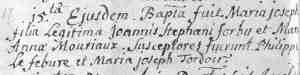 15ta Ejusdem. Bapta fuit Maria Joseph
filia Legitima Joannis Stephani et
Anna Mouriaux. Susceptores fuerunt Philippe
le febure et Maria Joseph Tordoir